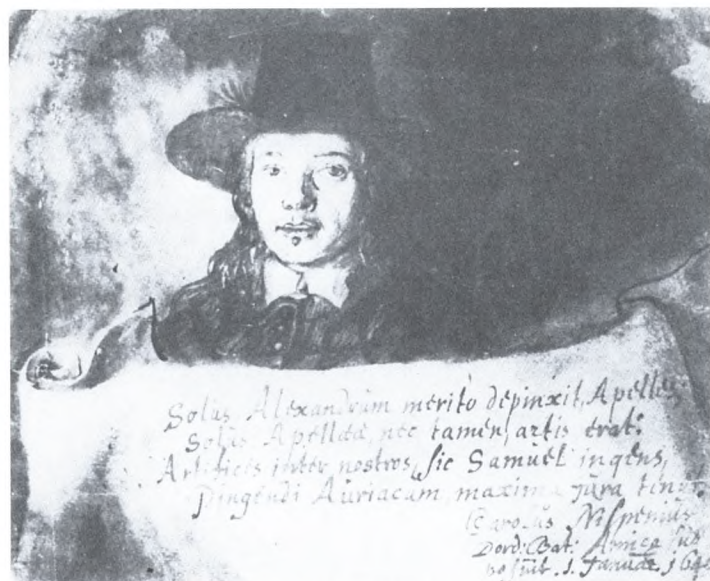 Solus Alexandrum merito depinxit, Apelles,
Solus Apelleae, nec tamen, artis erat:
Artifices inter nostros, sic Samuel ingens,
Pingendi Auriacum, maxima jura tenet.
Carolus Nispenius
Dord: Bat: Amice
1. Januar. 164